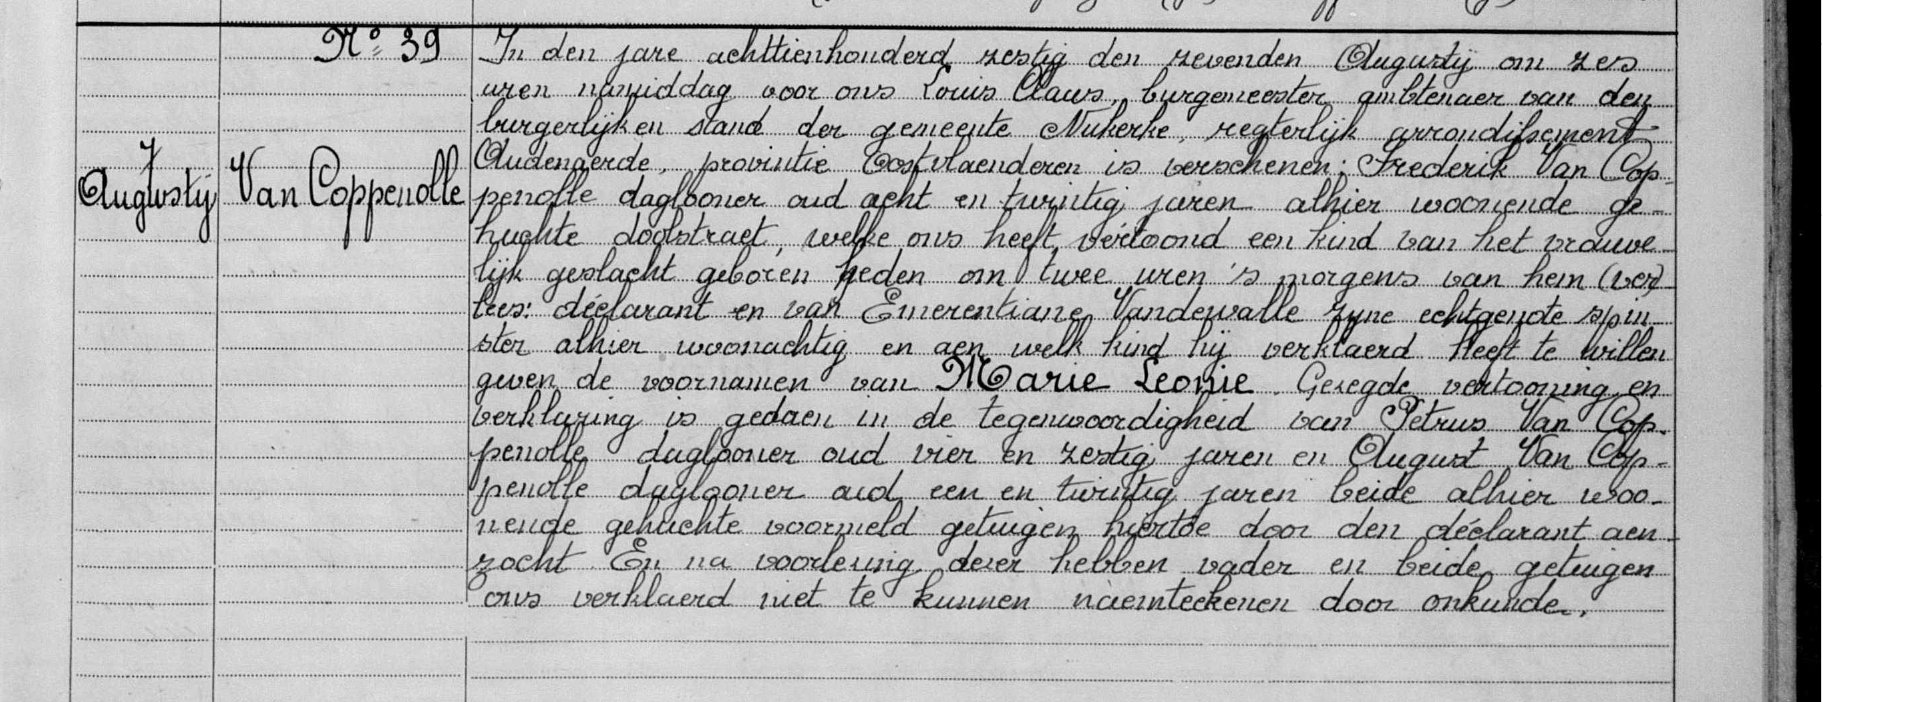 Nº 39
7
Augustij
Van Coppenolle
In den jare achttienhonderd zestig den zevenden Augustij om zes
uren namiddag voor ons Louis Claus, burgemeester ambtenaer van den
burgerlijken stand der gemeente Nukerke, regterlijk arrondissement
Audenaerde, provintie Oostvlaenderen is verschenen; Frederik Van Cop-
penolle daglooner oud acht en twintig jaren alhier woonende ge-
huchte dolstraet, welke ons heeft vertoond een kind van het vrouwe-
lijk geslacht geboren heden om twee uren 's morgens van hem (ver)
lees: déclarant en van Emerentiane Vandewalle zyne echtgenote spin-
ster alhier woonachtig en aen welk kind hij verklaerd heeft te willen
geven de voornamen van Marie Leonie. Gezegde vertooning en
verklaring is gedaen in de tegenwoordigheid van Petrus Van Cop-
penolle daglooner oud vier en zestig jaren en August Van Cop-
penolle daglooner oud een en twintig jaren beide alhier woo-
nende gehuchte voormeld getuigen hiertoe door den déclarant aen-
zocht. En na voorlezing dezer hebben vader en beide getuigen
ons verklaerd niet te kunnen naemteekenen door onkunde.